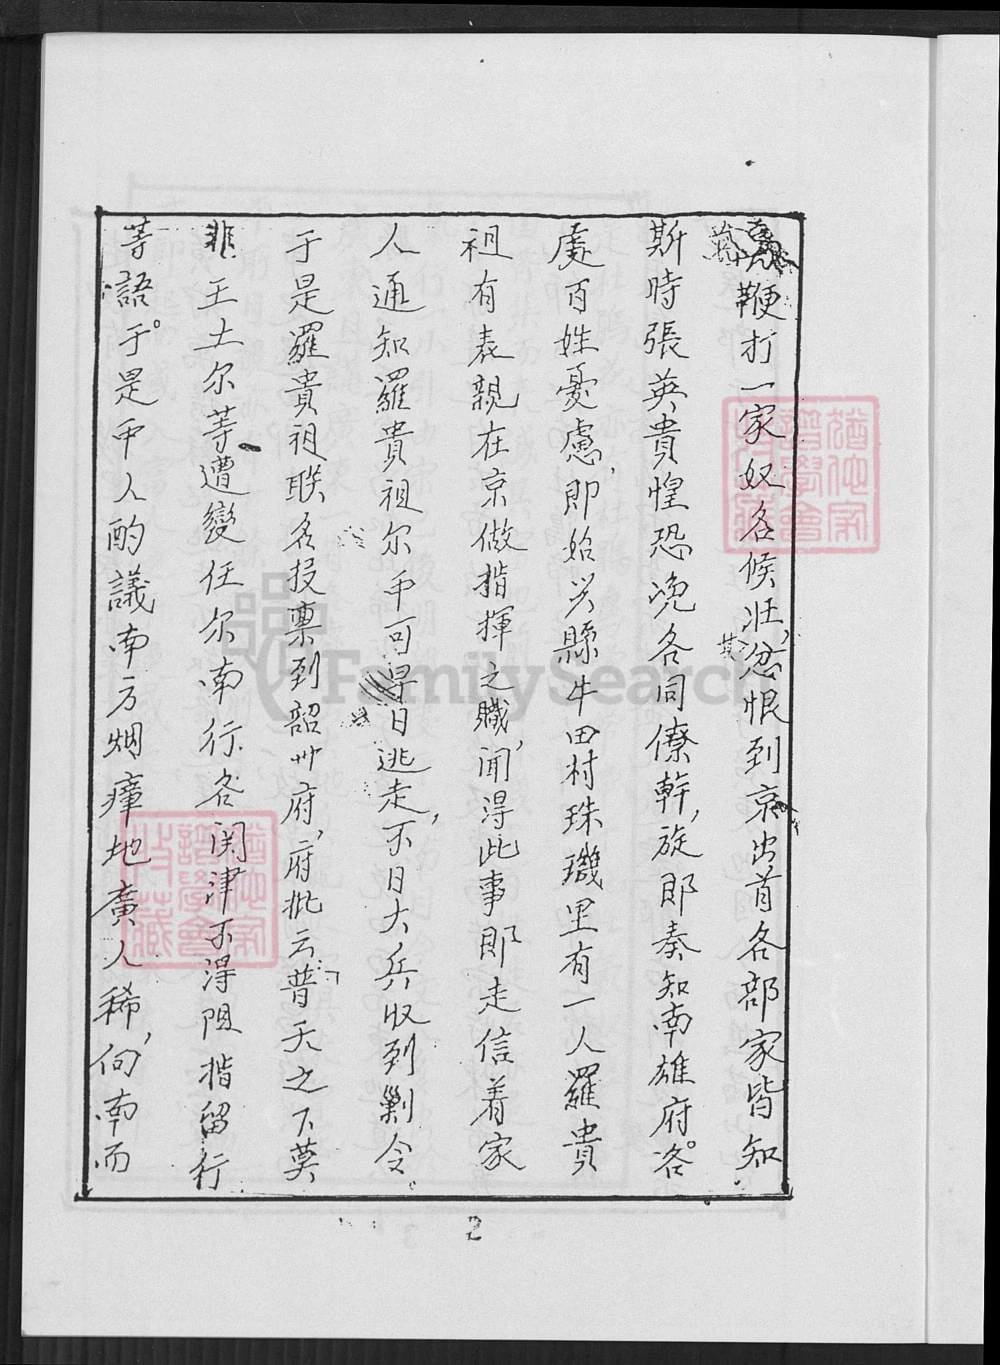 萬鞭打一家奴名候壯,忿恨到京出首各部家皆知
斯時張英貴惶恐浼各同僚幹旋,即奏知南雄府各。
處百姓憂慮,即始兴縣牛田村珠璣里有一人羅貴
祖有表親在京做指揮之職,闻得此事即走信着家
人通知羅貴祖尔甲可得日逃走,不日大兵收到剿令
于是羅貴祖联名投禀到韶州府,府批云普天之下莫
非王土尔等遭變任尔南行各関津不得阻揩留行
等語于。是甲人酌議南方烟瘴地廣人稀,向南而
2
猶他家譜學會收藏
猶他家譜學會收藏
FamilySearch